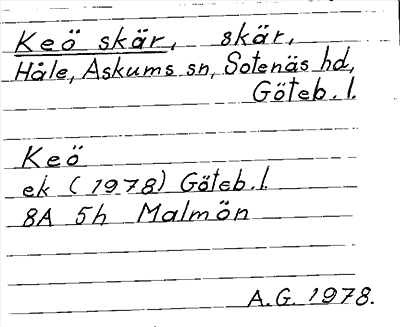 Keö skär, skär,
Håle, Askums sn, Sotenäs hd,
Göteb. l.
Keö
ek (1978) Göteb. l.
8A 5h Malmön
A.G. 1978.